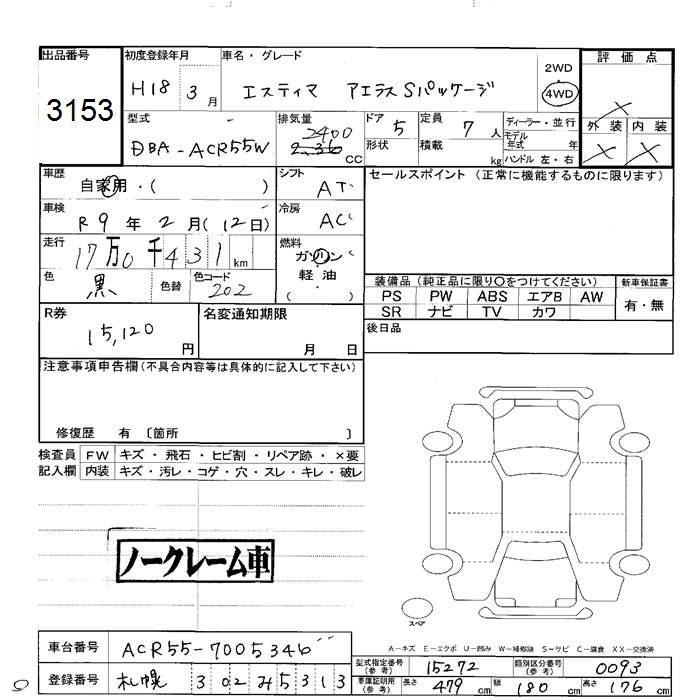 出品番号
3153
初度登録年月
H18 3月
車名・グレード
エスティマ アエラスSパッケージ
2WD
4WD
評価点
×
外装 内装
× ×
型式
DBA-ACR55W
排気量
2400
2.36 CC
ドア 5
形状
定員 7人
積載 kg
ディーラー・並行
モデル
年式 年
ハンドル 左・右
車歴
自家用・( )
シフト
AT
セールスポイント (正常に機能するものに限ります)
車検
R9年2月(12日)
冷房
AC
走行
17万0千431km
燃料
ガソリン
軽油
( )
色
黒
色替
色コード
202
装備品 (純正品に限り〇をつけてください)
PS PW ABS エアB AW
SR ナビ TV カワ
新車保証書
有・無
R券
15,120円
名変通知期限
月 日
後日品
注意事項申告欄(不具合内容等は具体的に記入して下さい)
修復歴 有 〔箇所 〕
検査員
記入欄
FW キズ・飛石・ヒビ割・リペア跡・×要
内装 キズ・汚レ・コゲ・穴・スレ・キレ・破レ
ノークレーム車
スペア
A-キズ E-エクボ U-凹み W-補修跡 S-サビ C-腐食 XX-交換済
車台番号 ACR55-7005346
登録番号 札幌 302 み 5313
型式指定番号
(参考)
15272
類別区分番号
(参考)
0093
車庫証明用
(参考)
長さ 479cm 幅 180cm 高さ 176cm